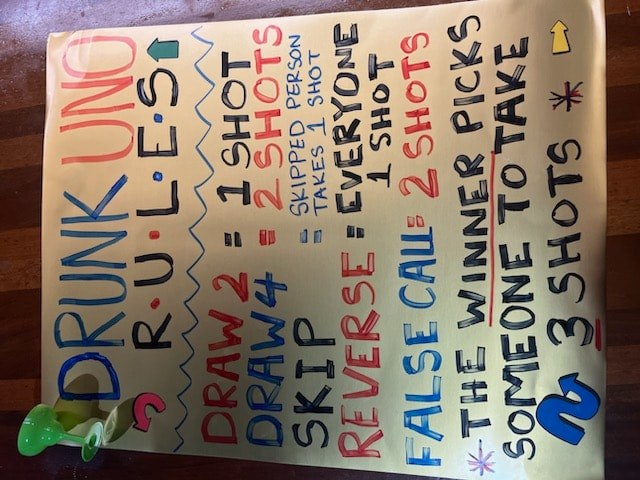 DRUNK UNO
R.U.L.E.S
DRAW 2 = 1 SHOT
DRAW 4 = 2 SHOTS
SKIP = SKIPPED PERSON
TAKES 1 SHOT
REVERSE = EVERYONE
1 SHOT
FALSE CALL = 2 SHOTS
* THE WINNER PICKS
SOMEONE TO TAKE
3 SHOTS *